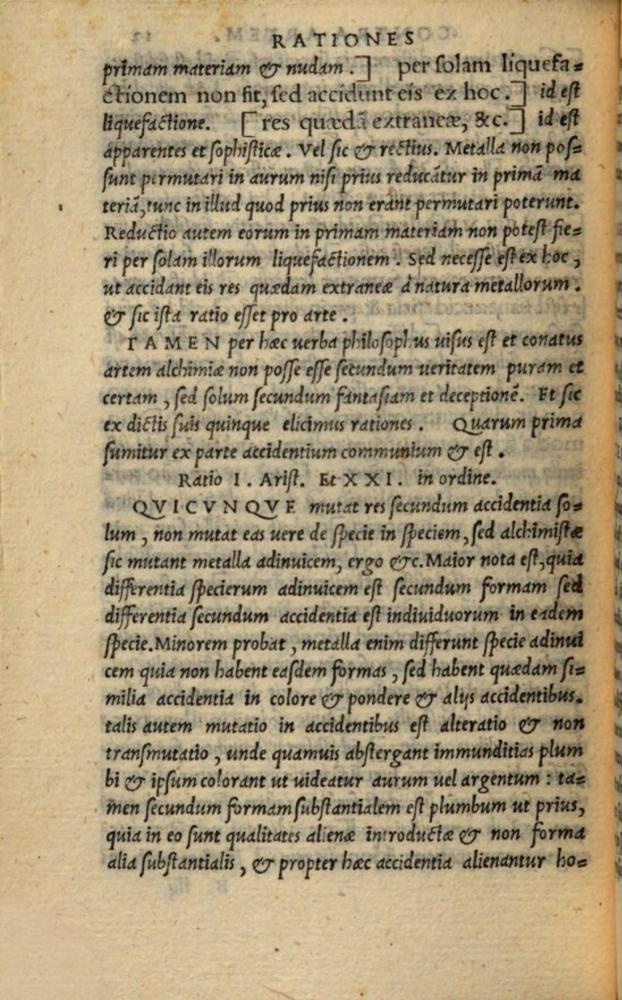 RATIONES
primam materiam & nudam.] per ſolam liquefa=
ctionem non fit, ſed accidunt eis ex hoc.] id eſt
liquefactione. [res quædã extraneæ, &c.] id eſt
apparentes et ſophiſticæ. Vel ſic & rectius. Metalla non poſ=
ſunt permutari in aurum niſi prius reducãtur in primã ma
teriã, tunc in illud quod prius non erãnt permutari poterunt.
Reductio autem eorum in primam materiam non poteſt fie=
ri per ſolam illorum liquefactionem. Sed neceſſe eſt ex hoc,
ut accidant eis res quædam extraneæ à natura metallorum.
& ſic iſta ratio eſſet pro arte.
TAMEN per hæc uerba philoſophus uiſus eſt et conatus
artem alchimiæ non poſſe eſſe ſecundum ueritatem puram et
certam, ſed ſolum ſecundum fantaſiam et deceptionẽ. Et ſic
ex dictis ſuis quinque elicimus rationes. Quarum prima
ſumitur ex parte accidentium communium & eſt.
Ratio I. Ariſt. Et XXI. in ordine.
QVICVNQVE mutat res ſecundum accidentia ſo=
lum, non mutat eas uere de ſpecie in ſpeciem, ſed alchimiſtæ
ſic mutant metalla adinuicem, ergo &c. Maior nota eſt, quia
differentia ſpecierum adinuicem eſt ſecundum formam ſed
differentia ſecundum accidentia eſt indiuiduorum in eadem
ſpecie. Minorem probat, metalla enim differunt ſpecie adinui
cem quia non habent eaſdem formas, ſed habent quædam ſi=
milia accidentia in colore & pondere & alijs accidentibus.
talis autem mutatio in accidentibus eſt alteratio & non
tranſmutatio, unde quamuis abſtergant immunditias plum
bi & ipſum colorant ut uideatur aurum uel argentum: ta=
men ſecundum formam ſubſtantialem eſt plumbum ut prius,
quia in eo ſunt qualitates alienæ introductæ & non forma
alia ſubſtantialis, & propter hæc accidentia alienantur ho=